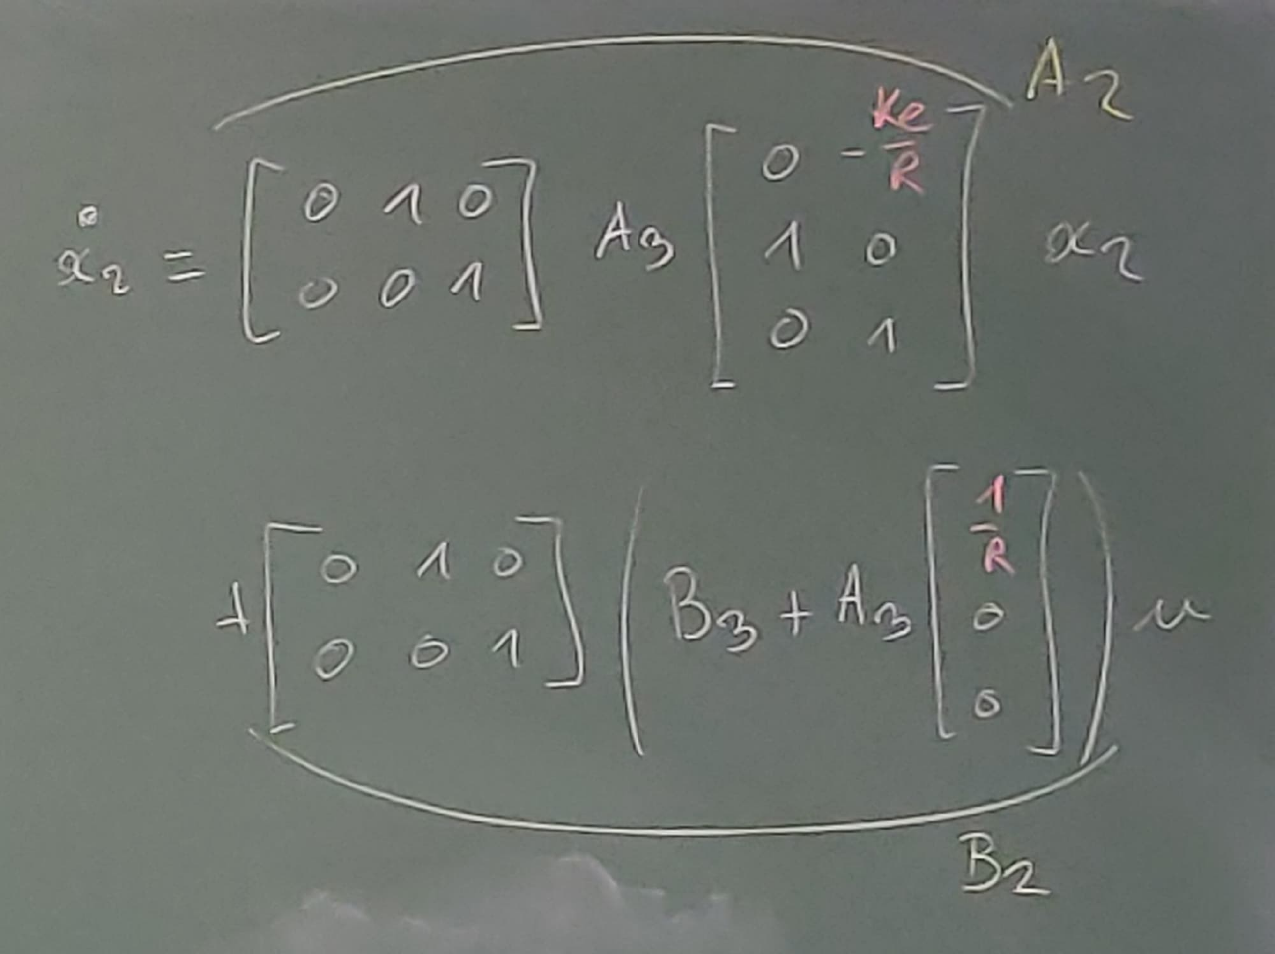 A2
ẋ2 = [ 0 1 0 ; 0 0 1 ] A3 [ 0 -Ke/R ; 1 0 ; 0 1 ] x2
+ [ 0 1 0 ; 0 0 1 ] ( B3 + A3 [ 1/R ; 0 ; 0 ] ) u
B2